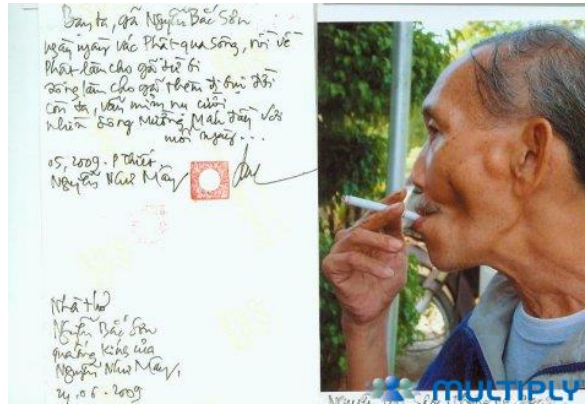 Bạn ta, gã Nguyễn Bắc Sơn
ngày ngày vác Phật qua sông, rồi về
Phật làm cho gã từ bi
sông làm cho gã thèm đi
còn ta, vẫn mỉm nụ cười
nhìn sông Mường Mán
mỗi ngày...
05, 2009. P Thiết
Nguyễn Như Mây
Nhà thơ
Nguyễn Bắc Sơn
qua ống kính của
Nguyễn Như Mây,
24.06.2009
MULTIPLY